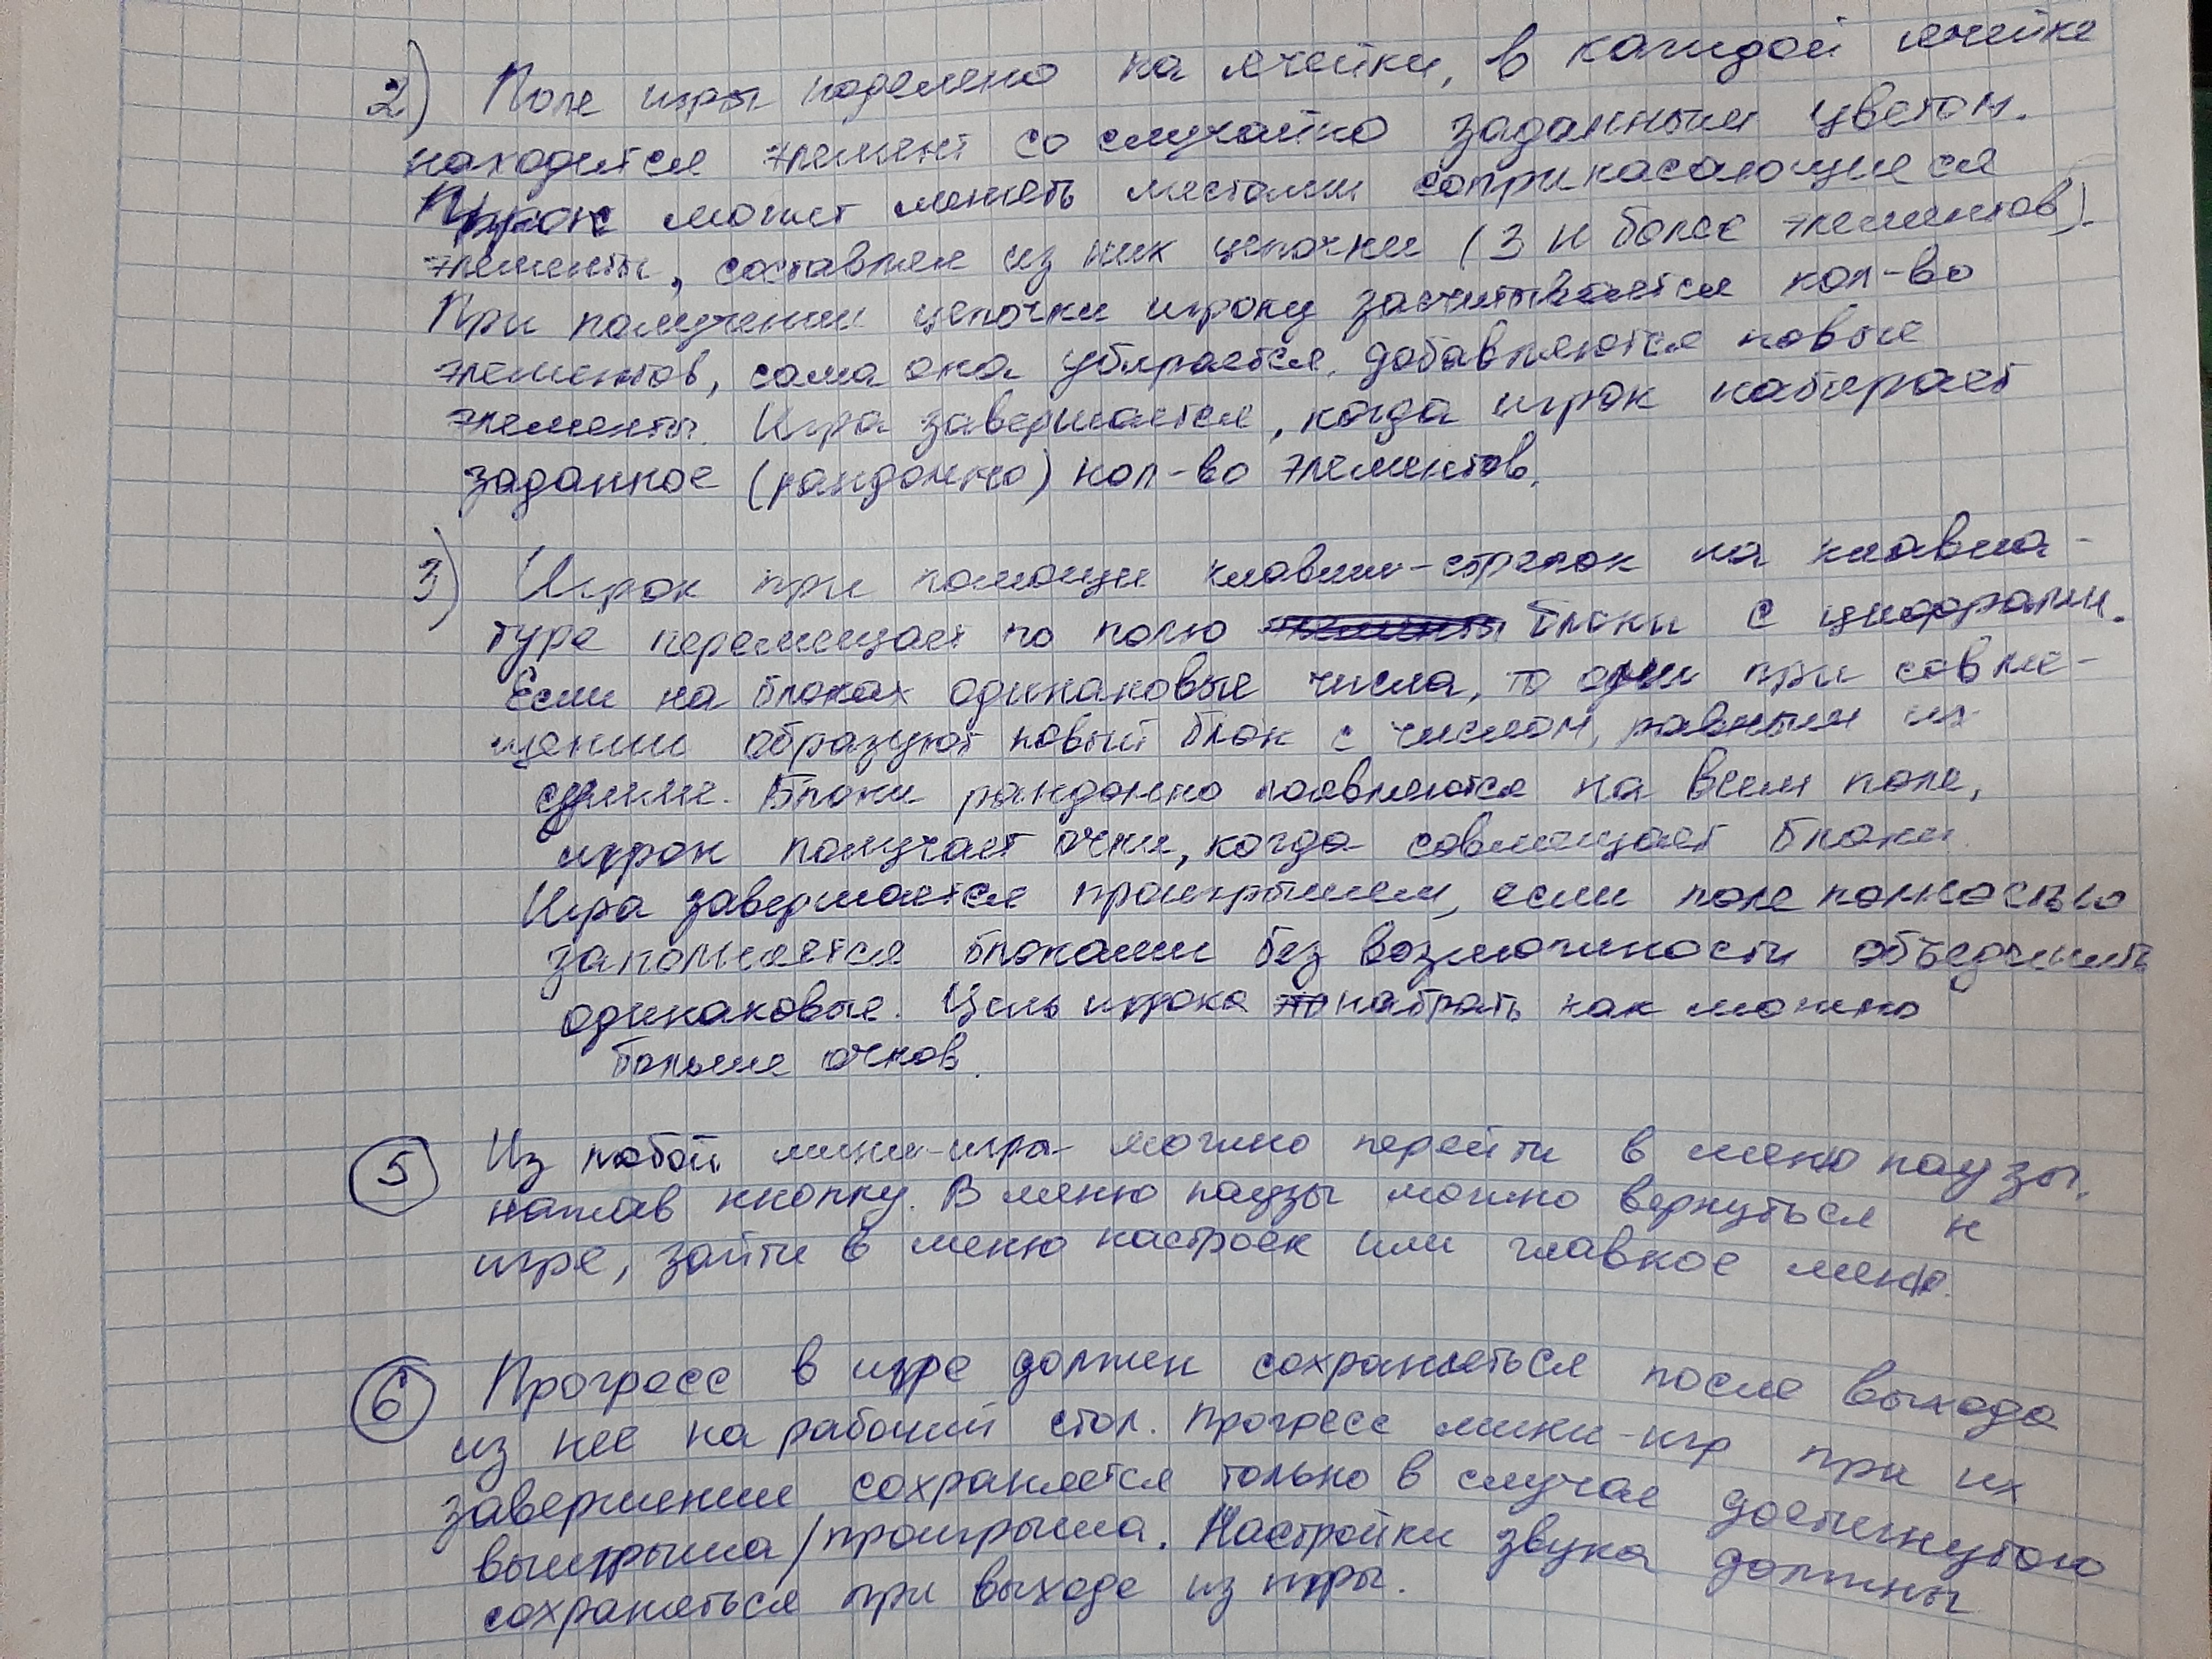 2) Поле игры поделено на ячейки, в каждой ячейке
находится элемент со случайно заданным цветом.
Игрок может менять местами соприкасающиеся
элементы, составляя из них цепочки (3 и более элементов).
При получении цепочки игроку засчитывается кол-во
элементов, сама она убирается, добавляются новые
элементы. Игра завершается, когда игрок набирает
заданное (рандомно) кол-во элементов.
3) Игрок при помощи клавиш-стрелок на клавиа-
туре перемещает по полю блоки с цифрами.
Если на блоках одинаковые числа, то они при совме-
щении образуют новый блок с числом, равным их
сумме. Блоки рандомно появляются на всем поле,
игрок получает очки, когда совмещает блоки.
Игра завершается проигрышем, если поле полностью
заполняется блоками без возможности объединить
одинаковые. Цель игрока набрать как можно
больше очков.
5 Из любой мини-игра можно перейти в меню паузы,
нажав кнопку. В меню паузы можно вернуться к
игре, зайти в меню настроек или главное меню.
6 Прогресс в игре должен сохраняться после выхода
из нее на рабочий стол. Прогресс мини-игр при их
завершении сохраняется только в случае достигнутого
выигрыша/проигрыша. Настройки звука должны
сохраняться при выходе из игры.